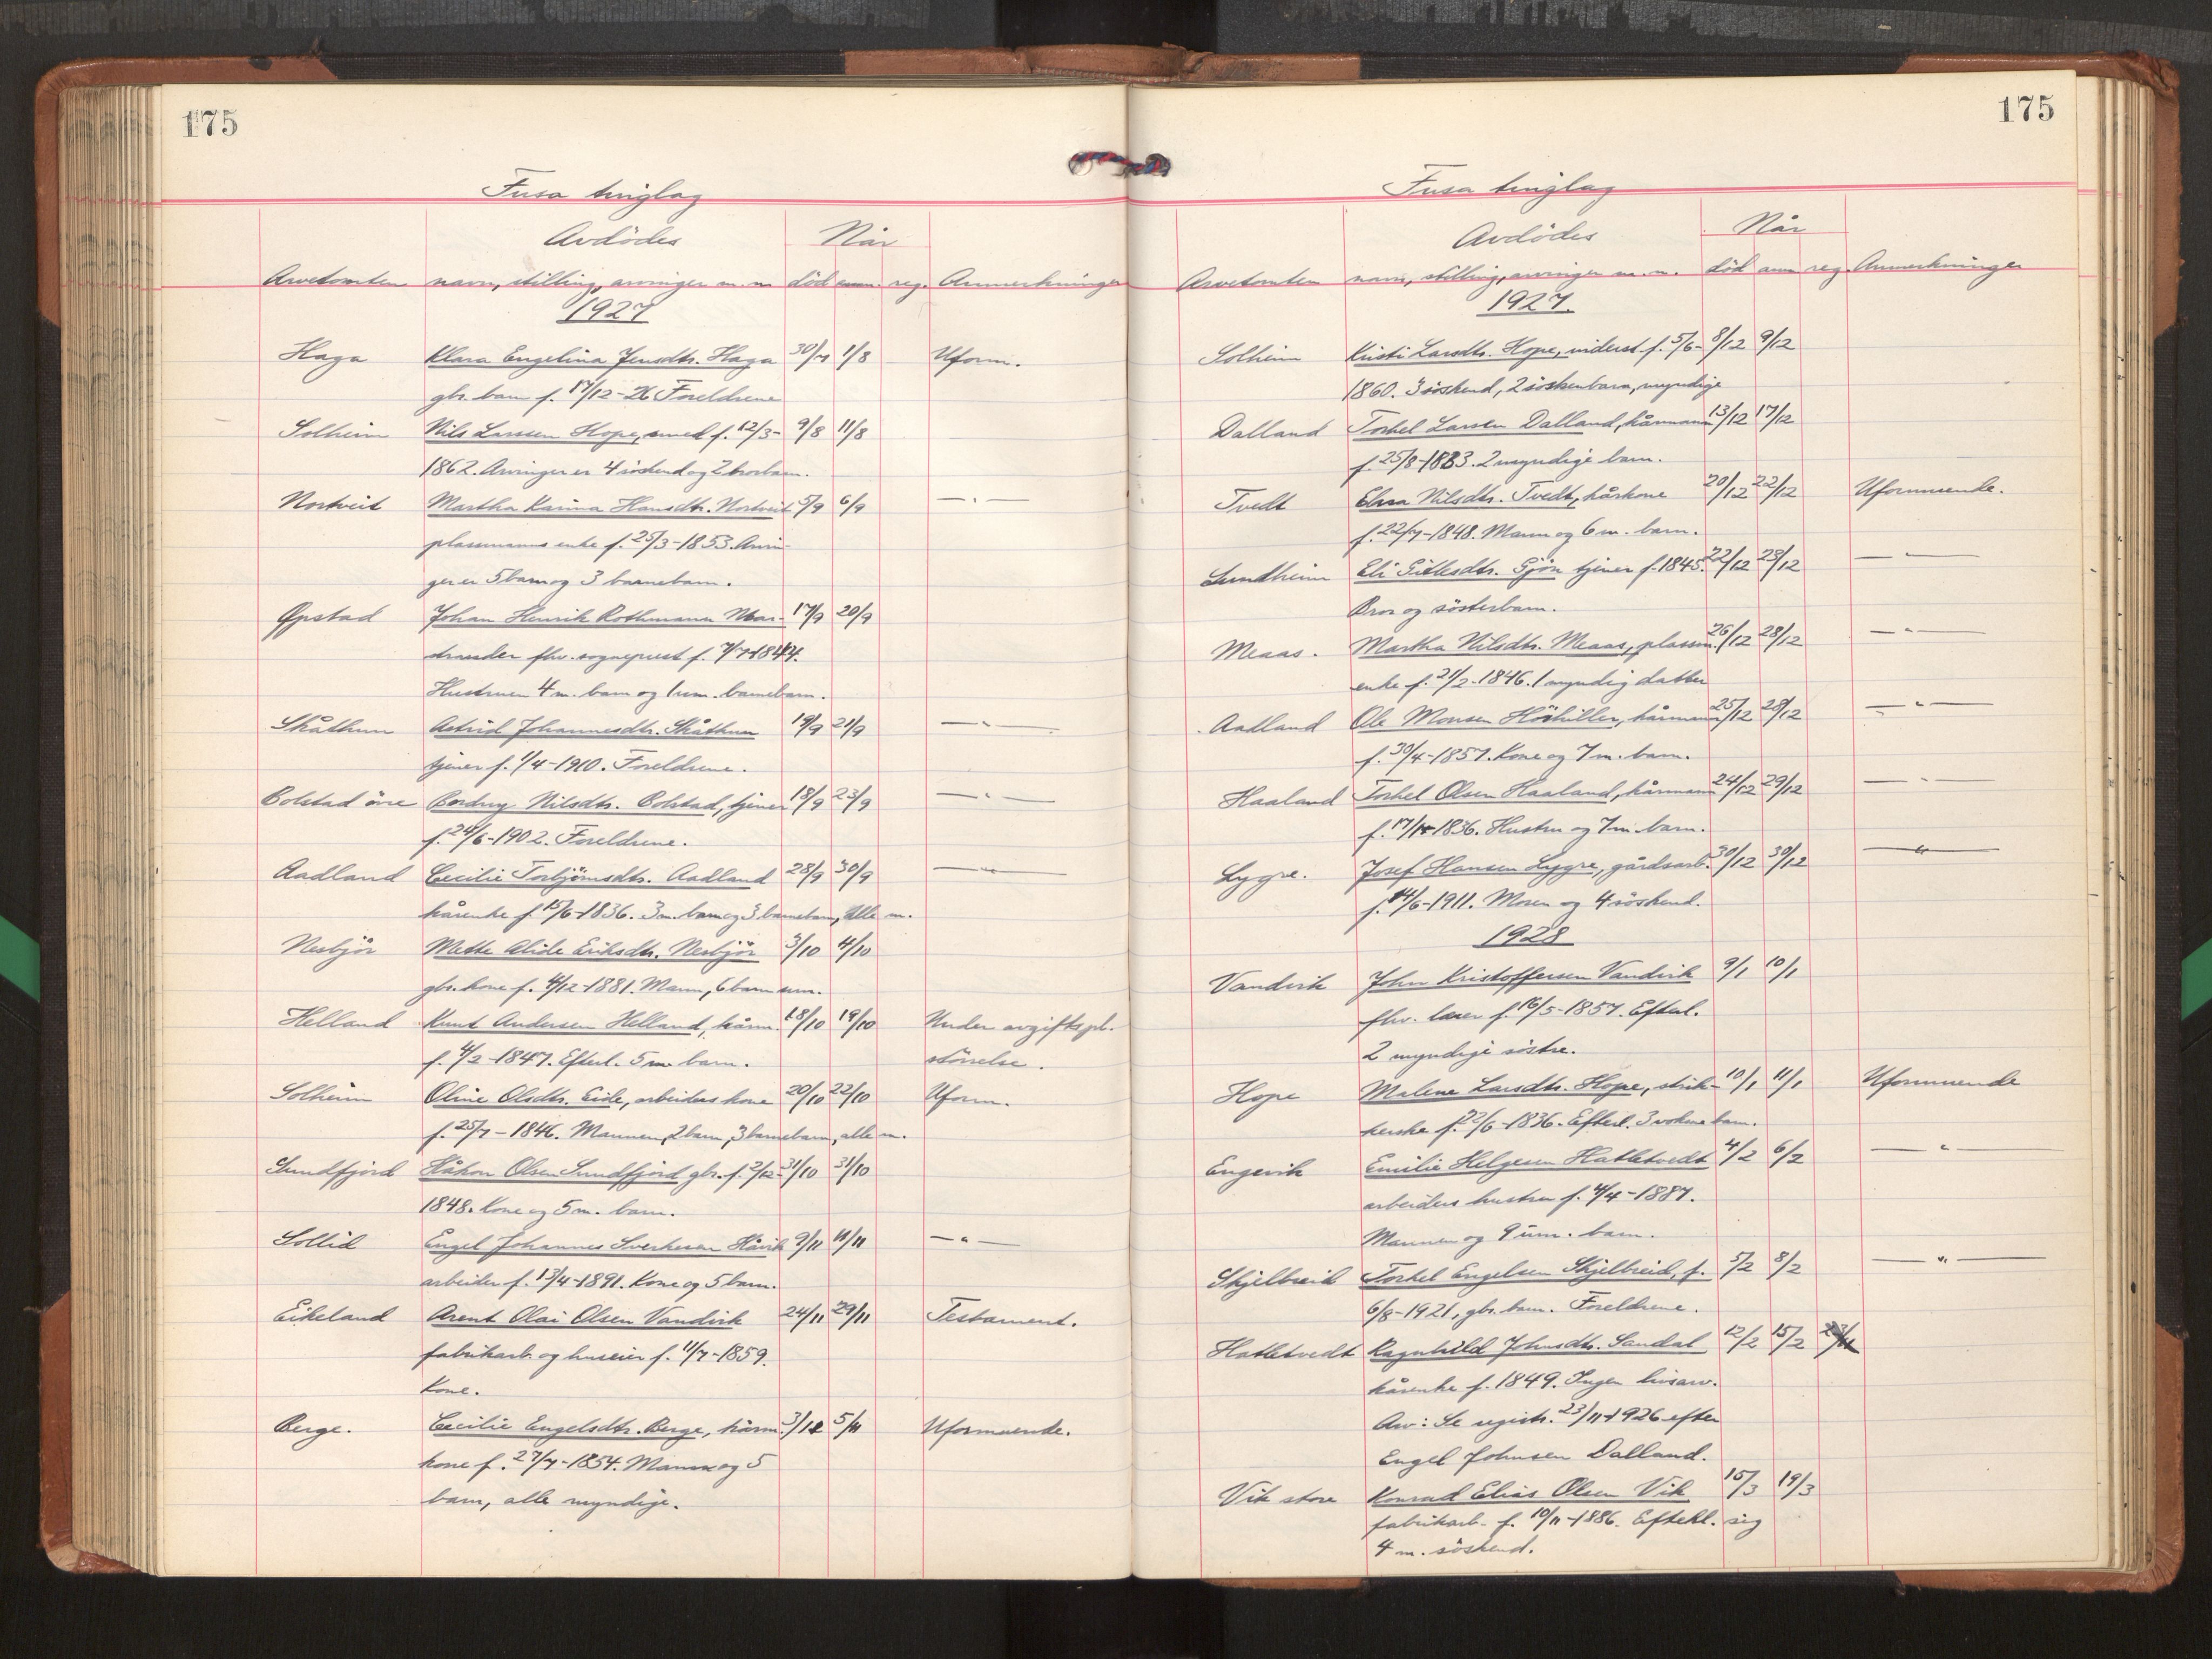 175
Fusa tinglag
Avdödes Når
Arvetomten navn, stilling, arvinger m.m död anm. reg. Anmerkninger
1927
Haga Klara Engelina Jensdtr. Haga 30/7 1/8 Uform.
gbr. barn f. 17/12-26 Foreldrene
Solheim Nils Larssen Hope, smed f. 12/3- 9/8 11/8
1862. Arvinger er 4 söskend og 2 brorbarn.
Nortveit Martha Karina Hansdtr. Nortveit 5/9 6/9 — " —
plassmanns enke f. 25/3-1853. Arvin-
ger er 5 barn og 3 barnebarn.
Opstad Johan Henrik Rothmann 17/9 20/9
fhv. sogneprest f. 7/7-1844.
Hustruen 4 m. barn og 1 um. barnebarn.
Skåthun Astrid Johannesdtr. Skåthun 19/9 21/9 — " —
tjener f. 1/4-1910. Foreldrene.
Bolstad öre Nilsdtr. Bolstad, tjener 18/9 23/9 — " —
f. 24/6-1902. Foreldrene.
Aadland Cecilie Torbjörnsdtr. Aadland 28/9 30/9 — " —
kårenke f. 15/6-1836. 3 m. barn og 3 barnebarn, alle m.
Nesbjör Mette Alide Eriksdtr. Nesbjör 3/10 4/10
gbr. kone f. 4/12-1881. Mann, 6 barn um.
Helland Knut Andersen Helland, kårm. 18/10 19/10 Under avgiftspl.
f. 4/2-1847. Efterl. 5 m. barn. störrelse.
Solheim Oline Olsdtr. Eide, arbeiders kone 20/10 22/10 Uform.
f. 25/7-1846. Mannen, 2 barn, 3 barnebarn, alle m.
Sundfjord Håkon Olsen Sundfjord gbr. f. 2/12- 31/10 31/10
1848. Kone og 5 m. barn.
Sollid Engel Johannes Sverkesen Håvik 9/11 11/11 — " —
arbeider f. 13/4-1891. Kone og 5 barn.
Eikeland Arent Olai Olsen Vandvik 24/11 29/11 Testament.
fabrikarb. og huseier f. 11/7-1859.
Kone.
Berge. Cecilie Engelsdtr. Berge, kårm. 3/12 5/11 Uformuende.
kone f. 27/7-1854. Mann og 5
barn, alle myndige.
175
Fusa tinglag
Avdödes Når
Arvetomten navn, stilling, arvinger m.m. död anm reg. Anmerkninger
1927.
Solheim Kristi Larsdtr. Hope, inderst f. 5/6- 8/12 9/12
1860. 3 söskend, 2 söskenbarn, myndige
Dalland Torkel Larsen Dalland, kårmann 13/12 17/12
f. 25/8-1883. 2 myndige barn.
Tvedt Elsa Nilsdtr. Tvedt, kårkone 20/12 22/12 Uformuende.
f. 22/7-1848. Mann og 6 m. barn.
Sundheim Eli Gittlesdtr. Gjön tjener f. 1845. 22/12 23/12 — " —
Bror og sösterbarn.
Meaas. Martha Nilsdtr. Meaas, plassm. 26/12 28/12 — " —
enke f. 21/2-1846. 1 myndig datter
Aadland Ole Monsen kårmann 25/12 28/12 — " —
f. 30/4-1857. Kone og 7 m. barn.
Haaland Torkel Olsen Haaland, kårmann 24/12 29/12 — " —
f. 17/11-1836. Hustru og 7 m. barn.
Lygre. Josef Hansen Lygre, gårdsarb. 30/12 30/12 — " —
f. 14/6-1911. Moren og 4 söskend.
1928
Vandvik John Kristoffersen Vandvik 9/1 10/1
fhv. lærer f. 16/5-1857. Efterl.
2 myndige söstre.
Hope Malene Larsdtr. Hope, strik- 10/1 11/1 Uformuende
kerske f. 22/6-1836. Efterl. 3 voksne barn.
Engevik Emilie Helgesen Hatletvedt 4/2 6/2 — " —
arbeiders hustru f. 4/4-1887.
Mannen og 9 um. barn.
Skjelbreid Torkel Engelsen Skjelbreid, f. 5/2 8/2 — " —
6/8-1921, gbr. barn. Foreldrene.
Hatletvedt Ragnhild Johnsdtr. Sandal 12/2 15/2
kårenke f. 1849. Ingen livsarv.
Arv: Se registr. 23/11-1926 efter
Engel Johnsen Dalland.
Vik store Konrad Elias Olsen Vik 15/3 19/3
fabrikarb. f. 10/11-1886. Efterl. sig
4 m. söskend.